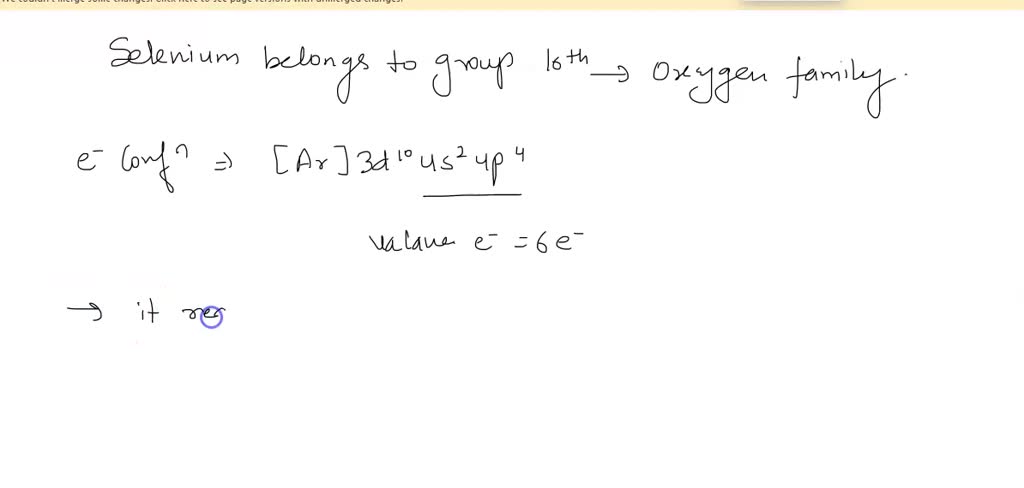 We couldn't merge some changes. Click here to see page versions with unmerged changes.
Selenium belongs to group 16th → Oxygen family.
e⁻ Confⁿ ⇒ [Ar] 3d¹⁰ 4s² 4p⁴
valance e⁻ = 6e⁻
→ it